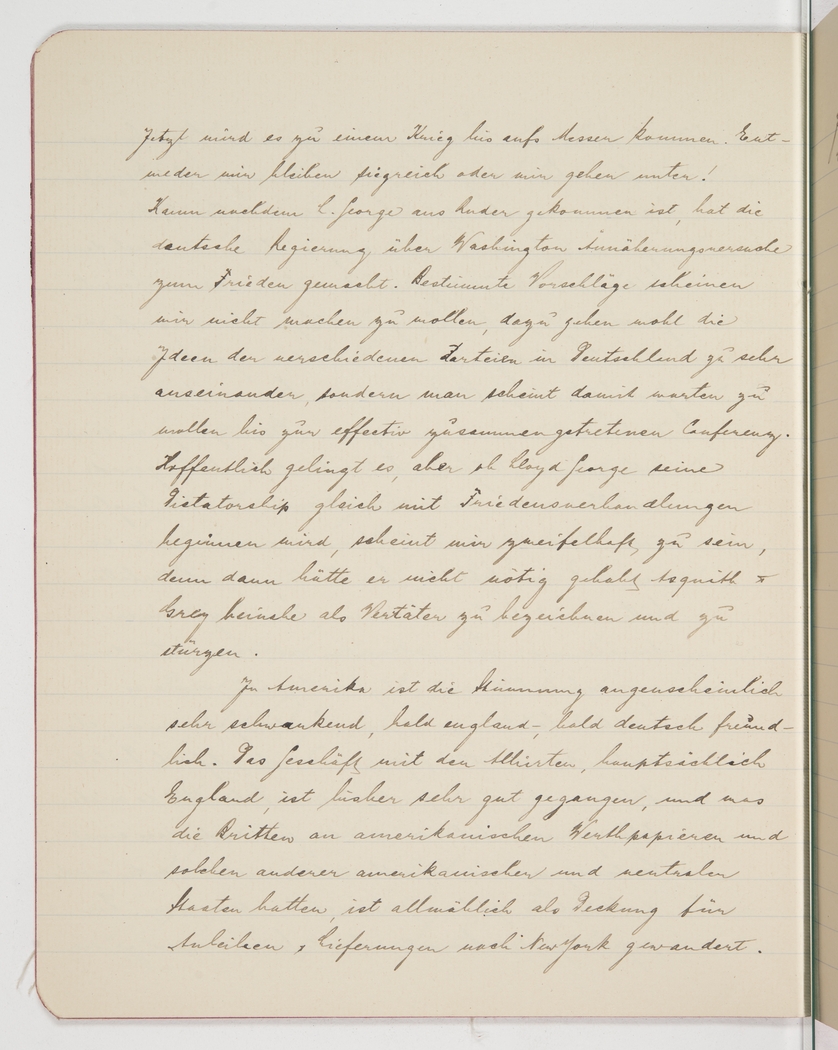 Jetzt wird es zu einem Krieg bis aufs Messer kommen. Ent-
weder wir bleiben siegreich oder wir gehen unter!
Kaum nachdem L. George ans Ruder gekommen ist, hat die
deutsche Regierung über Washington Annäherungsversuche
zum Frieden gemacht. Bestimmte Vorschläge scheinen
wir nicht machen zu wollen, dazu gehen wohl die
Ideen der verschiedenen Parteien in Deutschland zu sehr
auseinander, sondern man scheint damit warten zu
wollen bis zur effectiv zusammengetretenen Conferenz.
Hoffentlich gelingt es, aber ob Lloyd George seine
Dictatorship gleich mit Friedensverhandlungen
beginnen wird, scheint mir zweifelhaft zu sein,
denn dann hätte er nicht nötig gehabt Asquith &
Grey beinahe als Verräter zu bezeichnen und zu
stürzen.
In Amerika ist die Stimmung augenscheinlich
sehr schwankend, bald england-, bald deutsch freund-
lich. Das Geschäft mit den Alliirten, hauptsächlich
England, ist bisher sehr gut gegangen, und was
die Britten an amerikanischen Werthpapieren und
solchen anderer amerikanischer und neutralen
Staaten hatten, ist allmählich als Deckung für
Anleihen & Lieferungen nach New York gewandert.